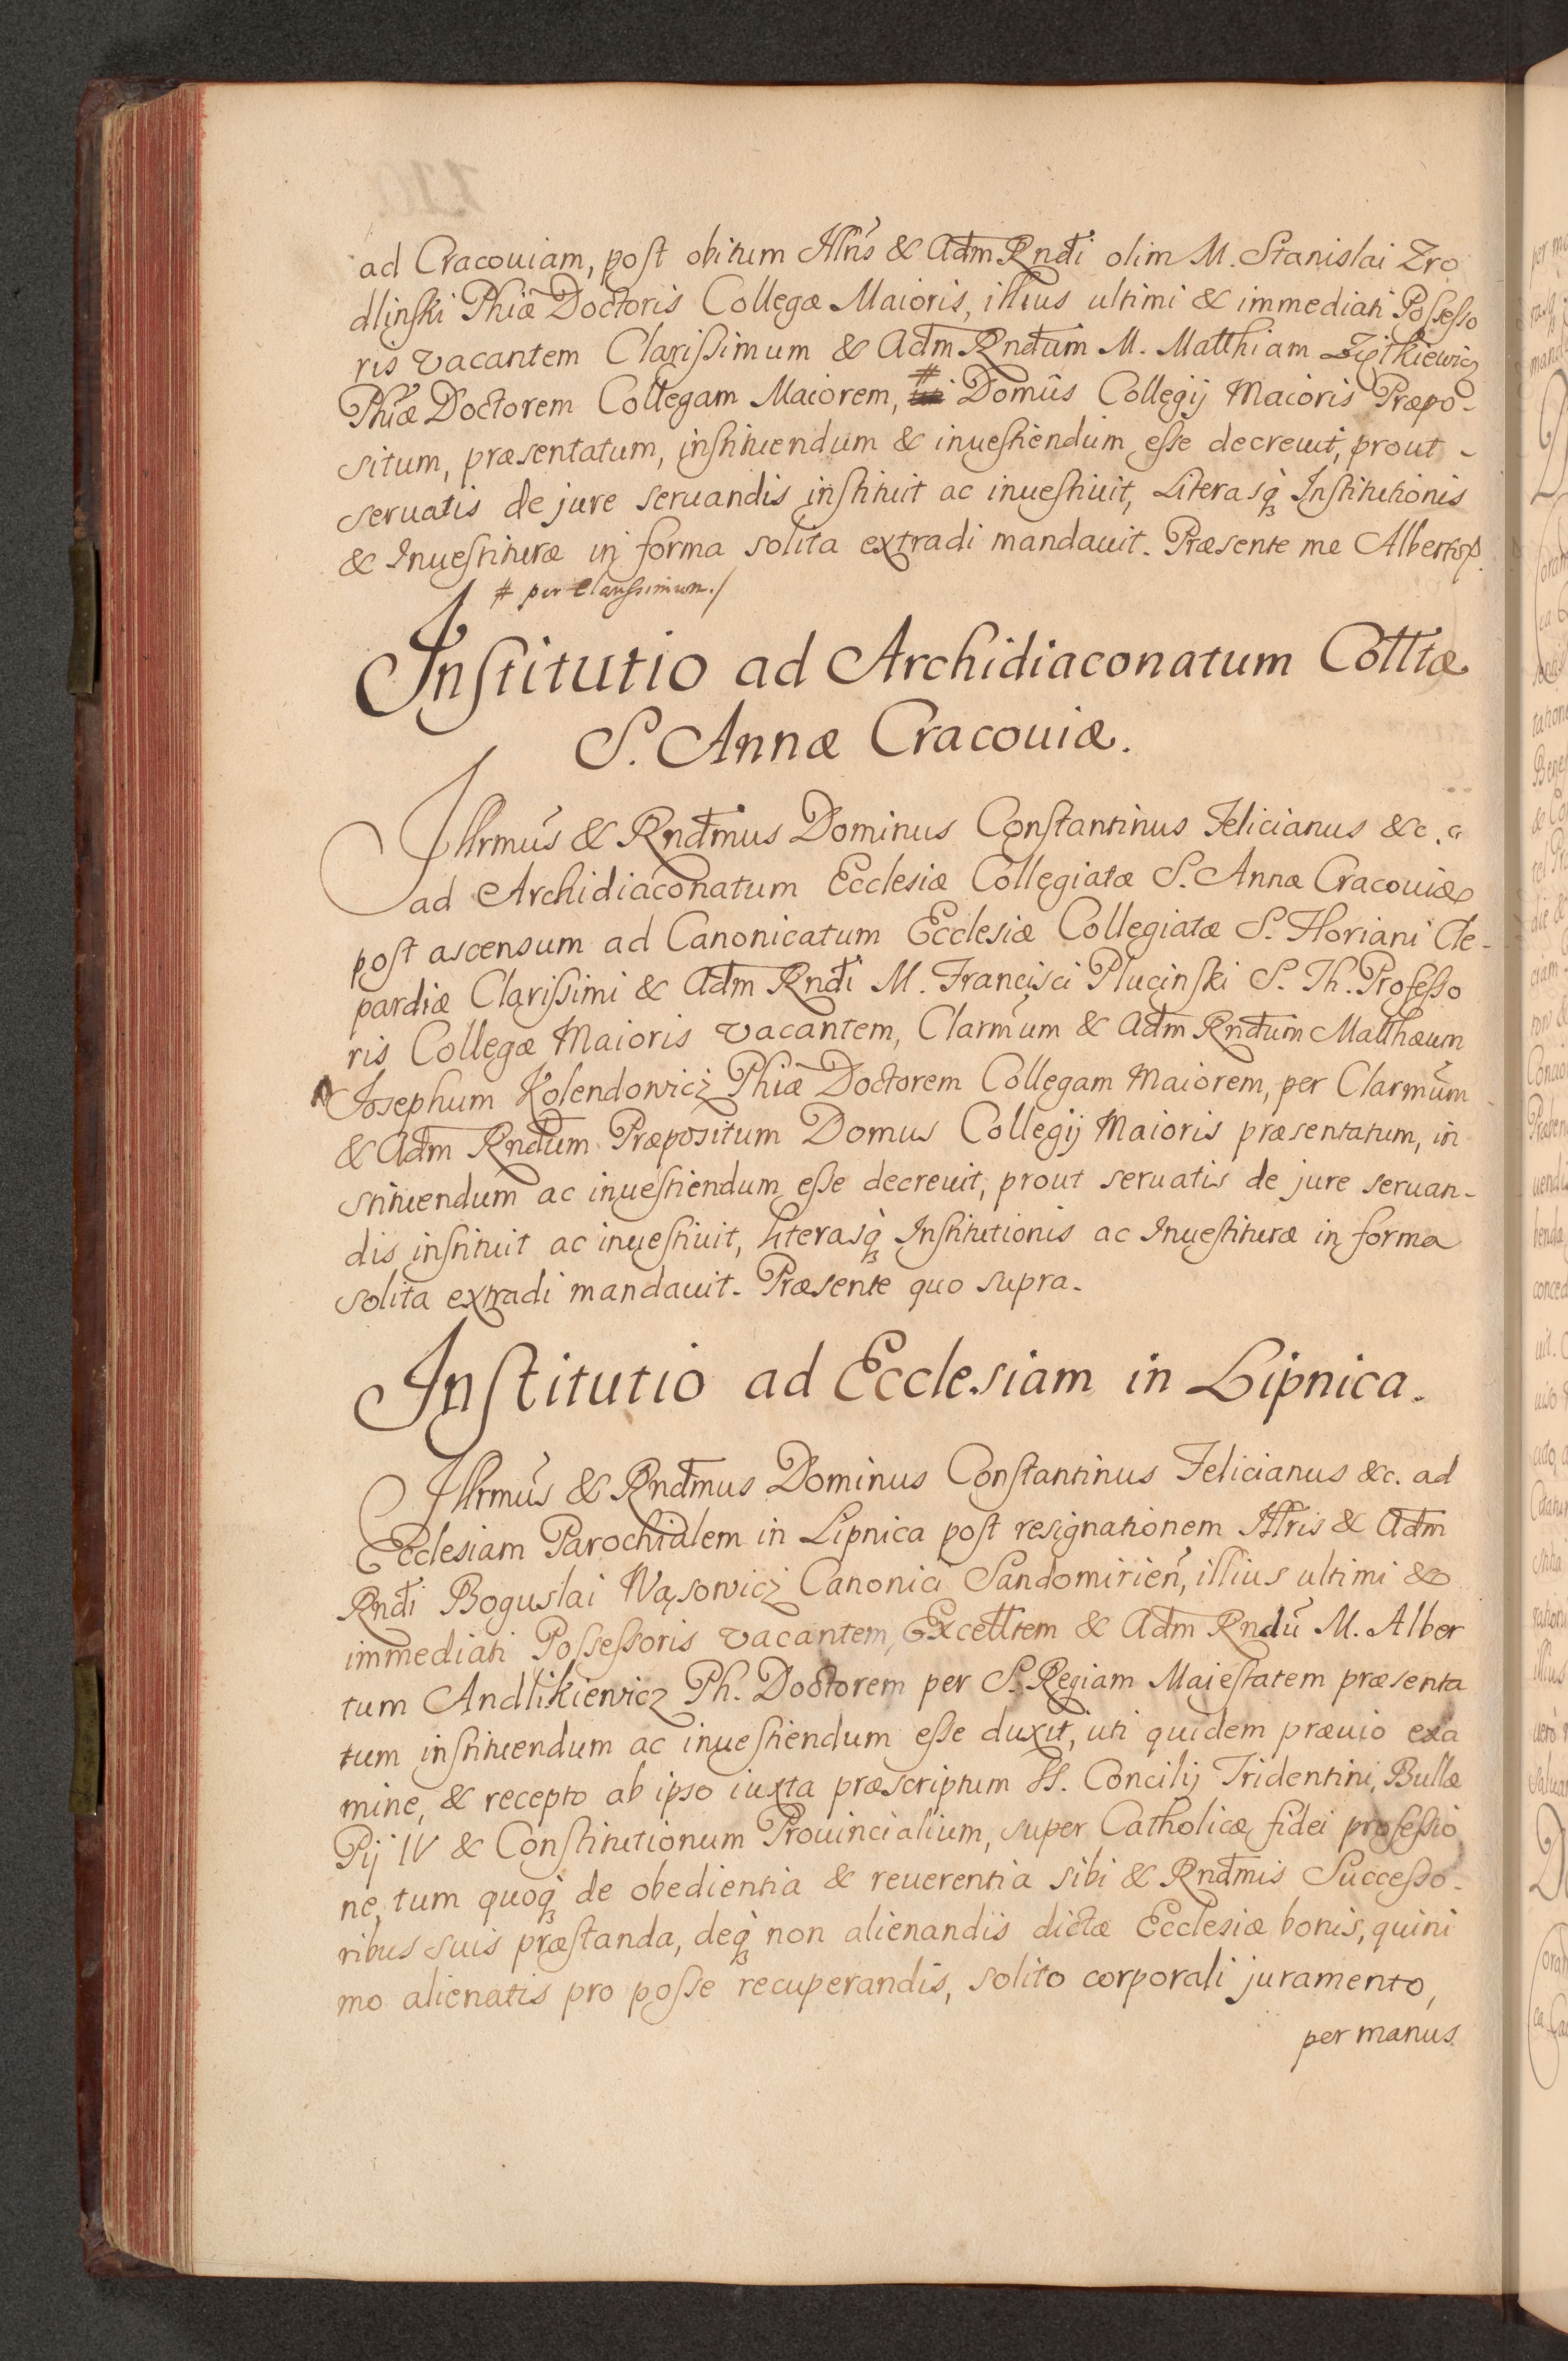 ad Cracouiam, post obitum Illris & Adm Rndi olim M. Stanislai Zro
dlinski Phiæ Doctoris Collegæ Maioris, illius ultimi & immediati Possesso
ris vacantem Clarissimum & Adm Rndum M. Matthiam Ziętkiewicz
Phiæ Doctorem Collegam Maiorem, # Domûs Collegij Maioris Præpo-
situm, præsentatum, instituendum & inuestiendum esse decreuit, prout -
seruatis de jure seruandis instituit ac inuestiuit, Literasq̀ Institutionis
& Inuestituræ in forma solita extradi mandauit. Præsente me Alberto
# per Clarissimum./
Institutio ad Archidiaconatum Colltæ
S. Annæ Cracouiæ.
Illrmus & Rndmus Dominus Constantinus Felicianus &c. a
ad Archidiaconatum Ecclesiæ Collegiatæ S. Annæ Cracouiæ
post ascensum ad Canonicatum Ecclesiæ Collegiatæ S. Floriani Cle-
pardiæ Clarissimi & Adm Rndi M. Francisci Plucinski S. Th. Professo
ris Collegæ Maioris vacantem, Clarmum & Adm Rndum Matthæum
Josephum Kolendowicz Phiæ Doctorem Collegam Maiorem, per Clarmum
& Adm Rndum Præpositum Domus Collegij Maioris præsentatum, in
stituendum ac inuestiendum esse decreuit, prout seruatis de jure seruan-
dis instituit ac inuestiuit, literasq̀ Institutionis ac Inuestituræ in forma
solita extradi mandauit. Præsente quo supra.
Institutio ad Ecclesiam in Lipnica.
Illrmus & Rndmus Dominus Constantinus Felicianus &c. ad
Ecclesiam Parochialem in Lipnica post resignationem Illtris & Adm
Rndi Boguslai Wąsowicz Canonici Sandomirien̄, illius ultimi &
immediati Possessoris vacantem, Excelltem & Adm Rndū M. Alber
tum Andlikiewicz Ph. Doctorem per S. Regiam Majestatem præsenta
tum instituendum ac inuestiendum esse duxit, uti quidem præuio exa
mine, & recepto ab ipso iuxta præscriptum SS. Concilij Tridentini, Bullæ
Pij IV & Constitutionum Prouincialium, super Catholicæ fidei professio
ne, tum quoq̀ de obedientia & reuerentia sibi & Rndmis Successo-
ribus suis præstanda, deq̀ non alienandis dictæ Ecclesiæ bonis, quini
mo alienatis pro posse recuperandis, solito corporali juramento,
per manus